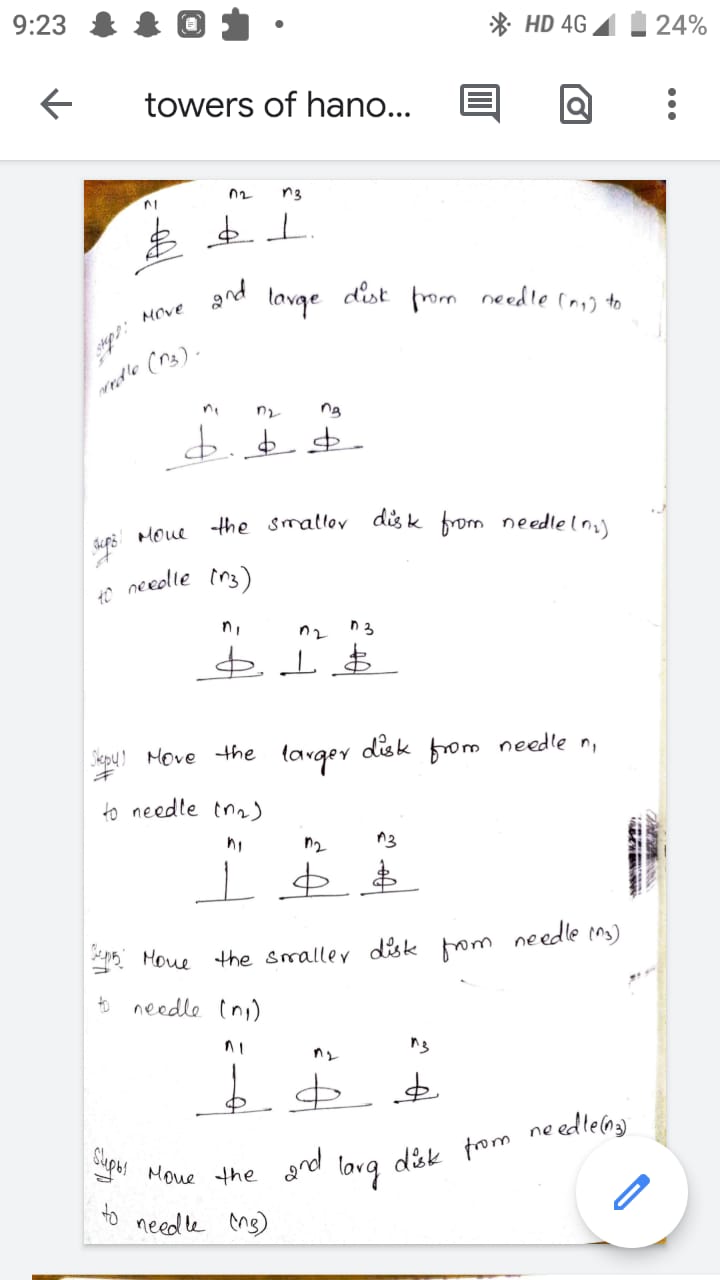 9:23
HD 4G 24%
towers of hano...
n1 n2 n3
step2: Move 2nd large disk from needle (n1) to
needle (n3).
n1 n2 n3
step3: Move the smaller disk from needle (n2)
to needle (n3)
n1 n2 n3
Step4: Move the larger disk from needle n1
to needle (n2)
n1 n2 n3
Step5: Move the smaller disk from needle (n3)
to needle (n1)
n1 n2 n3
Step6: Move the 2nd larg disk from needle(n3)
to needle (n3)